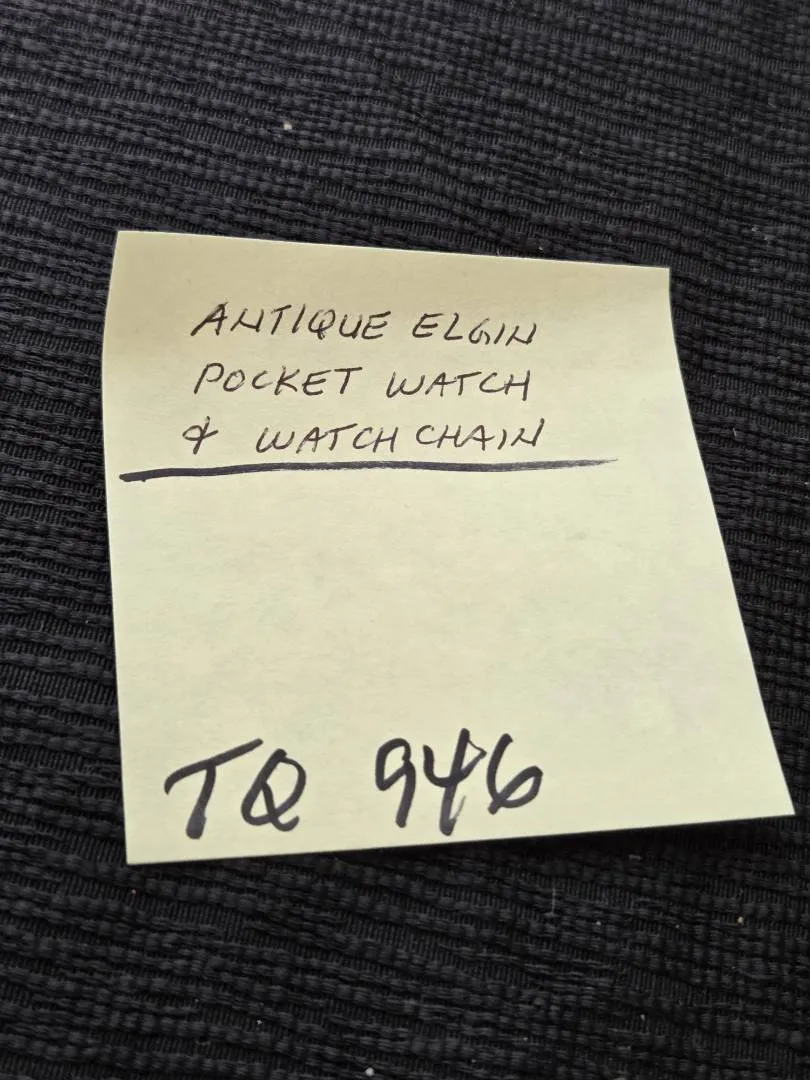 ANTIQUE ELGIN
POCKET WATCH
& WATCH CHAIN
TQ 946